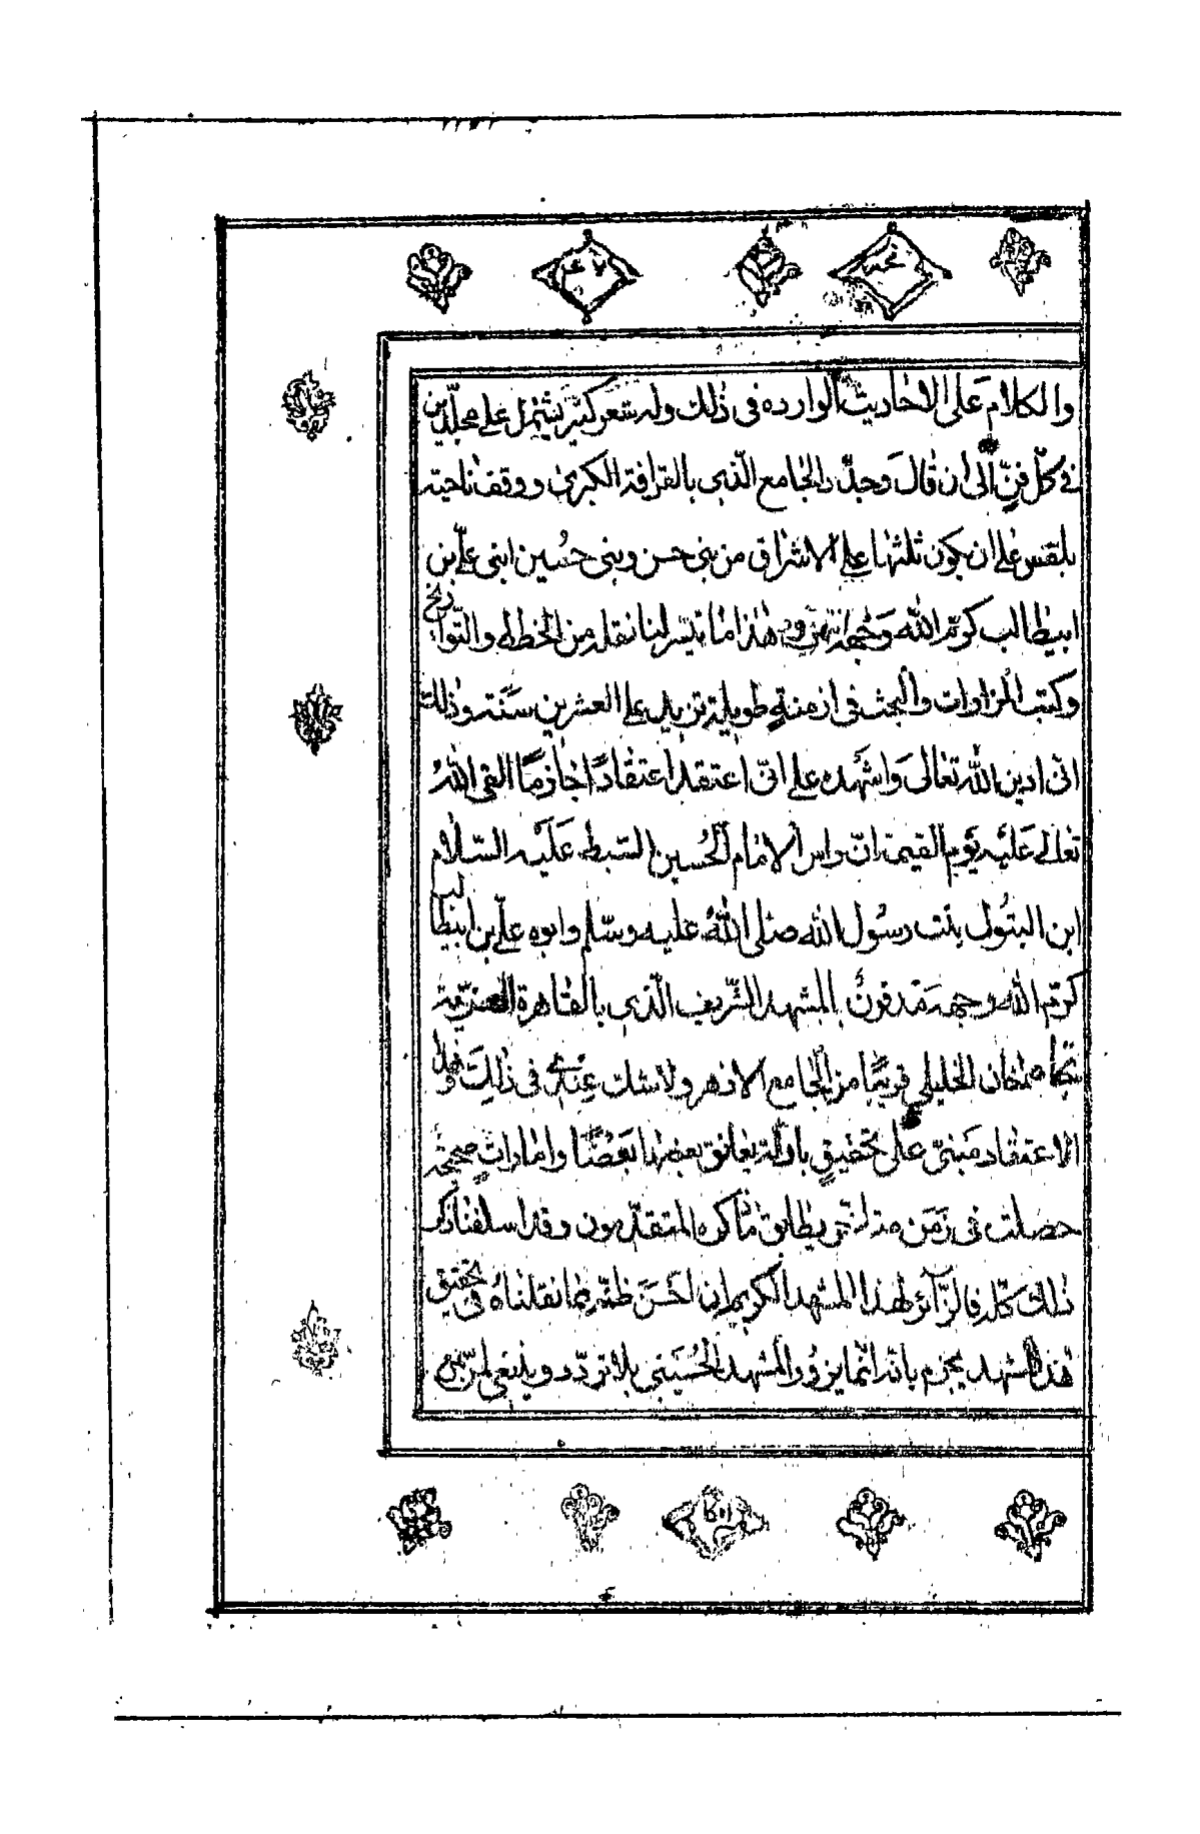 والكلام على الاحاديث الوارده فى ذلك وله شعر كثير يشتمل على مجلّدين
فى كلّ فنّ الى ان قال وجدّد الجامع الّذى بالقرافة الكبرى ووقف ناحيته
بلقس على ان يكون ثلثها على الاشراق من بنى حسن وبنى حسين ابنى علىّ بن
ابيطالب كرّم الله وجهه انتهى وهذا ما تيسّر لنا نقله من الخطط والتّواريخ
وكتب المزاوات والبحث فى ازمنة طويلة تزيد على العشرين سنة وذلك
انّى ادين الله تعالى واشهده على انّى اعتقد اعتقادًا جاذمًا القى اللهُ
تعالى عليه يوم القيمة انّ راس الامام الحسين السّبط عليه السّلام
ابن البتول بنت رسول الله صلى الله عليه وسلّم وابوه علىّ بن ابيطالب
كرّم الله وجهه مدفونٌ بالمشهد الشّريف الّذى بالقاهرة المعزيّة
تجاه خان الخليلى قريبًا من الجامع الازهر ولا شك عندى فى ذلك وهذا
الاعتقاد مبنىّ على تحقيقٍ بادلّة يعانق بعضها بعضًا وامارات صحيحة
حصلت فى زمن يطابق ما ذكره المتقدّمون وقد اسلفنا ذكر
ذلك كلّه فالزّآئر لهذا المشهد الكريم ان احسن ظنّه بما نقلناه فى تحقيق
هذا المشهد يجزم بانّه انّما يزور المشهد الحسينى بلا تردّد وينبغى لمن